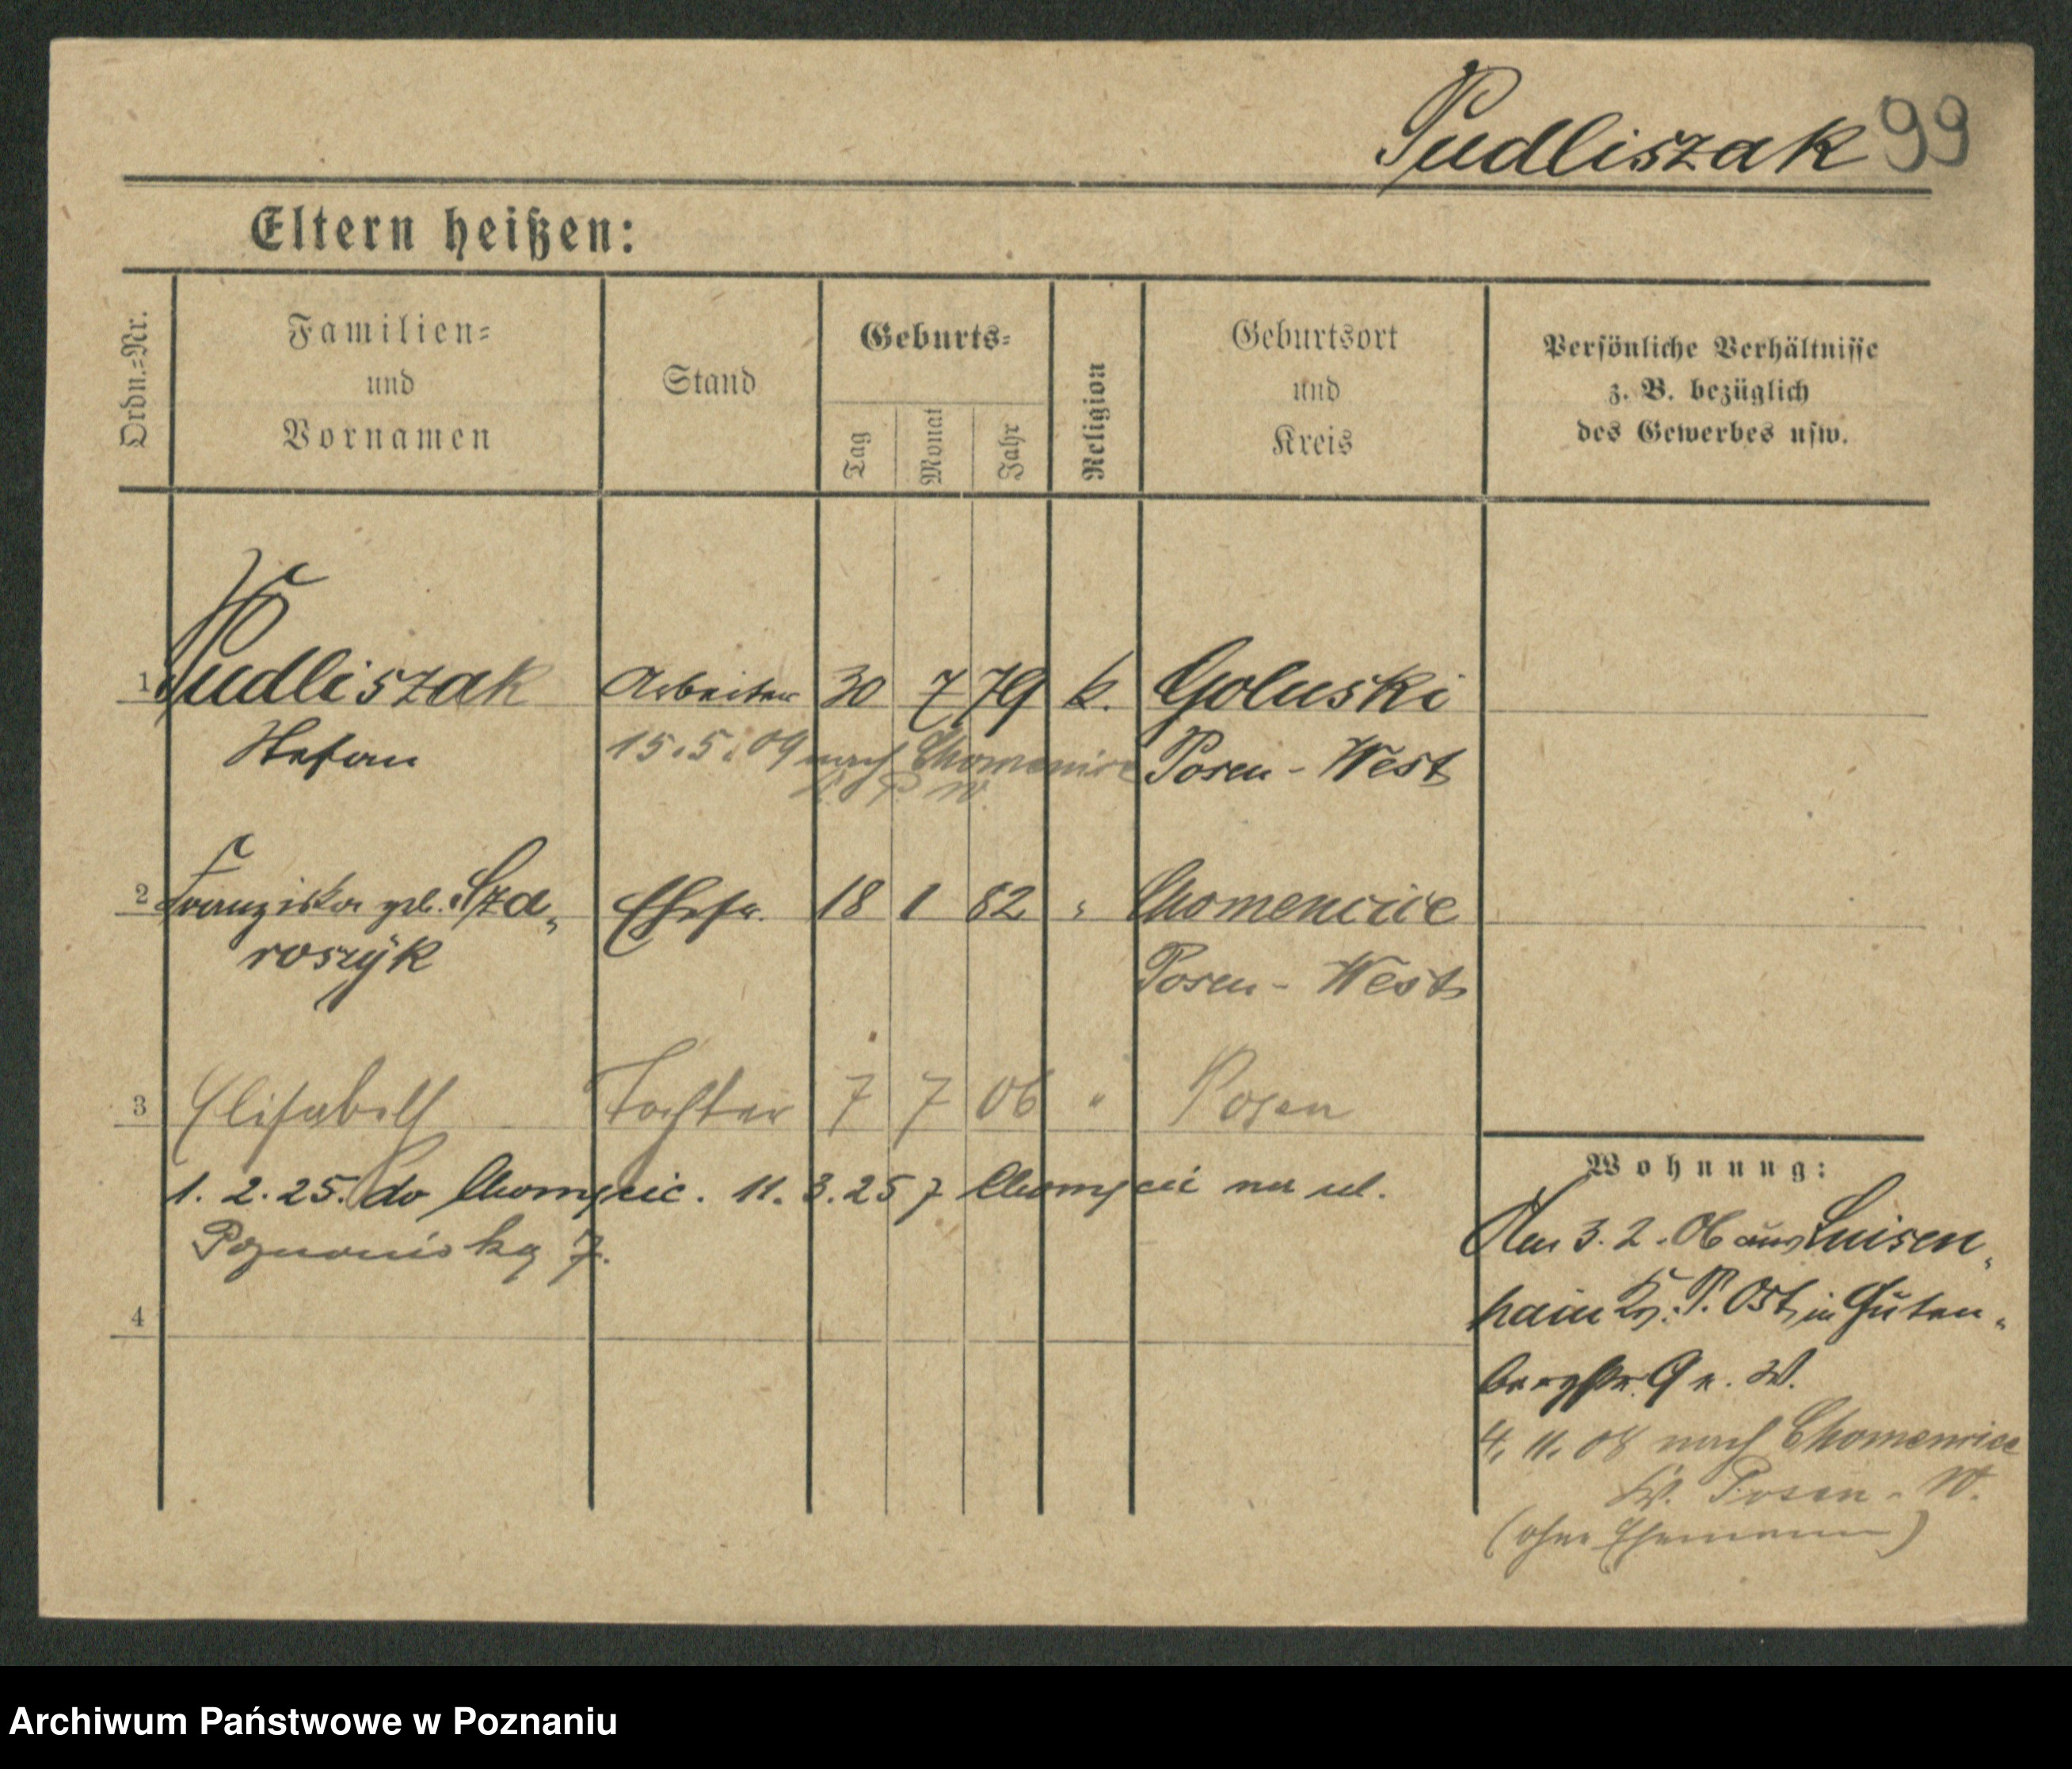 Pudliszak 99
Eltern heißen:
Ordn.-Nr.
Familien-
und
Vornamen
Stand
Geburts-
Tag
Monat
Jahr
Religion
Geburtsort
und
Kreis
Persönliche Verhältnisse
z. B. bezüglich
des Gewerbes usw.
1 Pudliszak Arbeiter 30 7 79 k. Goluski
Stefan 15.5.09 nach Chomencice Posen-West
K P W.
2 Franziska geb. Sza- Ehefr. 18 1 82 " Chomencice
roszÿk
Posen-West
3 Elisabeth Tochter 7 7 06 " Posen
1. 2. 25. do Chomęcic. 11. 3. 25 z Chomęcic na ul.
Poznańską 7.
4
Wohnung:
Am 3. 2. 06 aus Luisen-
hain Kr. P. Ost, in Guten-
bergstr. 9 W.
4. 11. 08 nach Chomencice
Kr. Posen-W.
(ohne Ehemann)
Archiwum Państwowe w Poznaniu